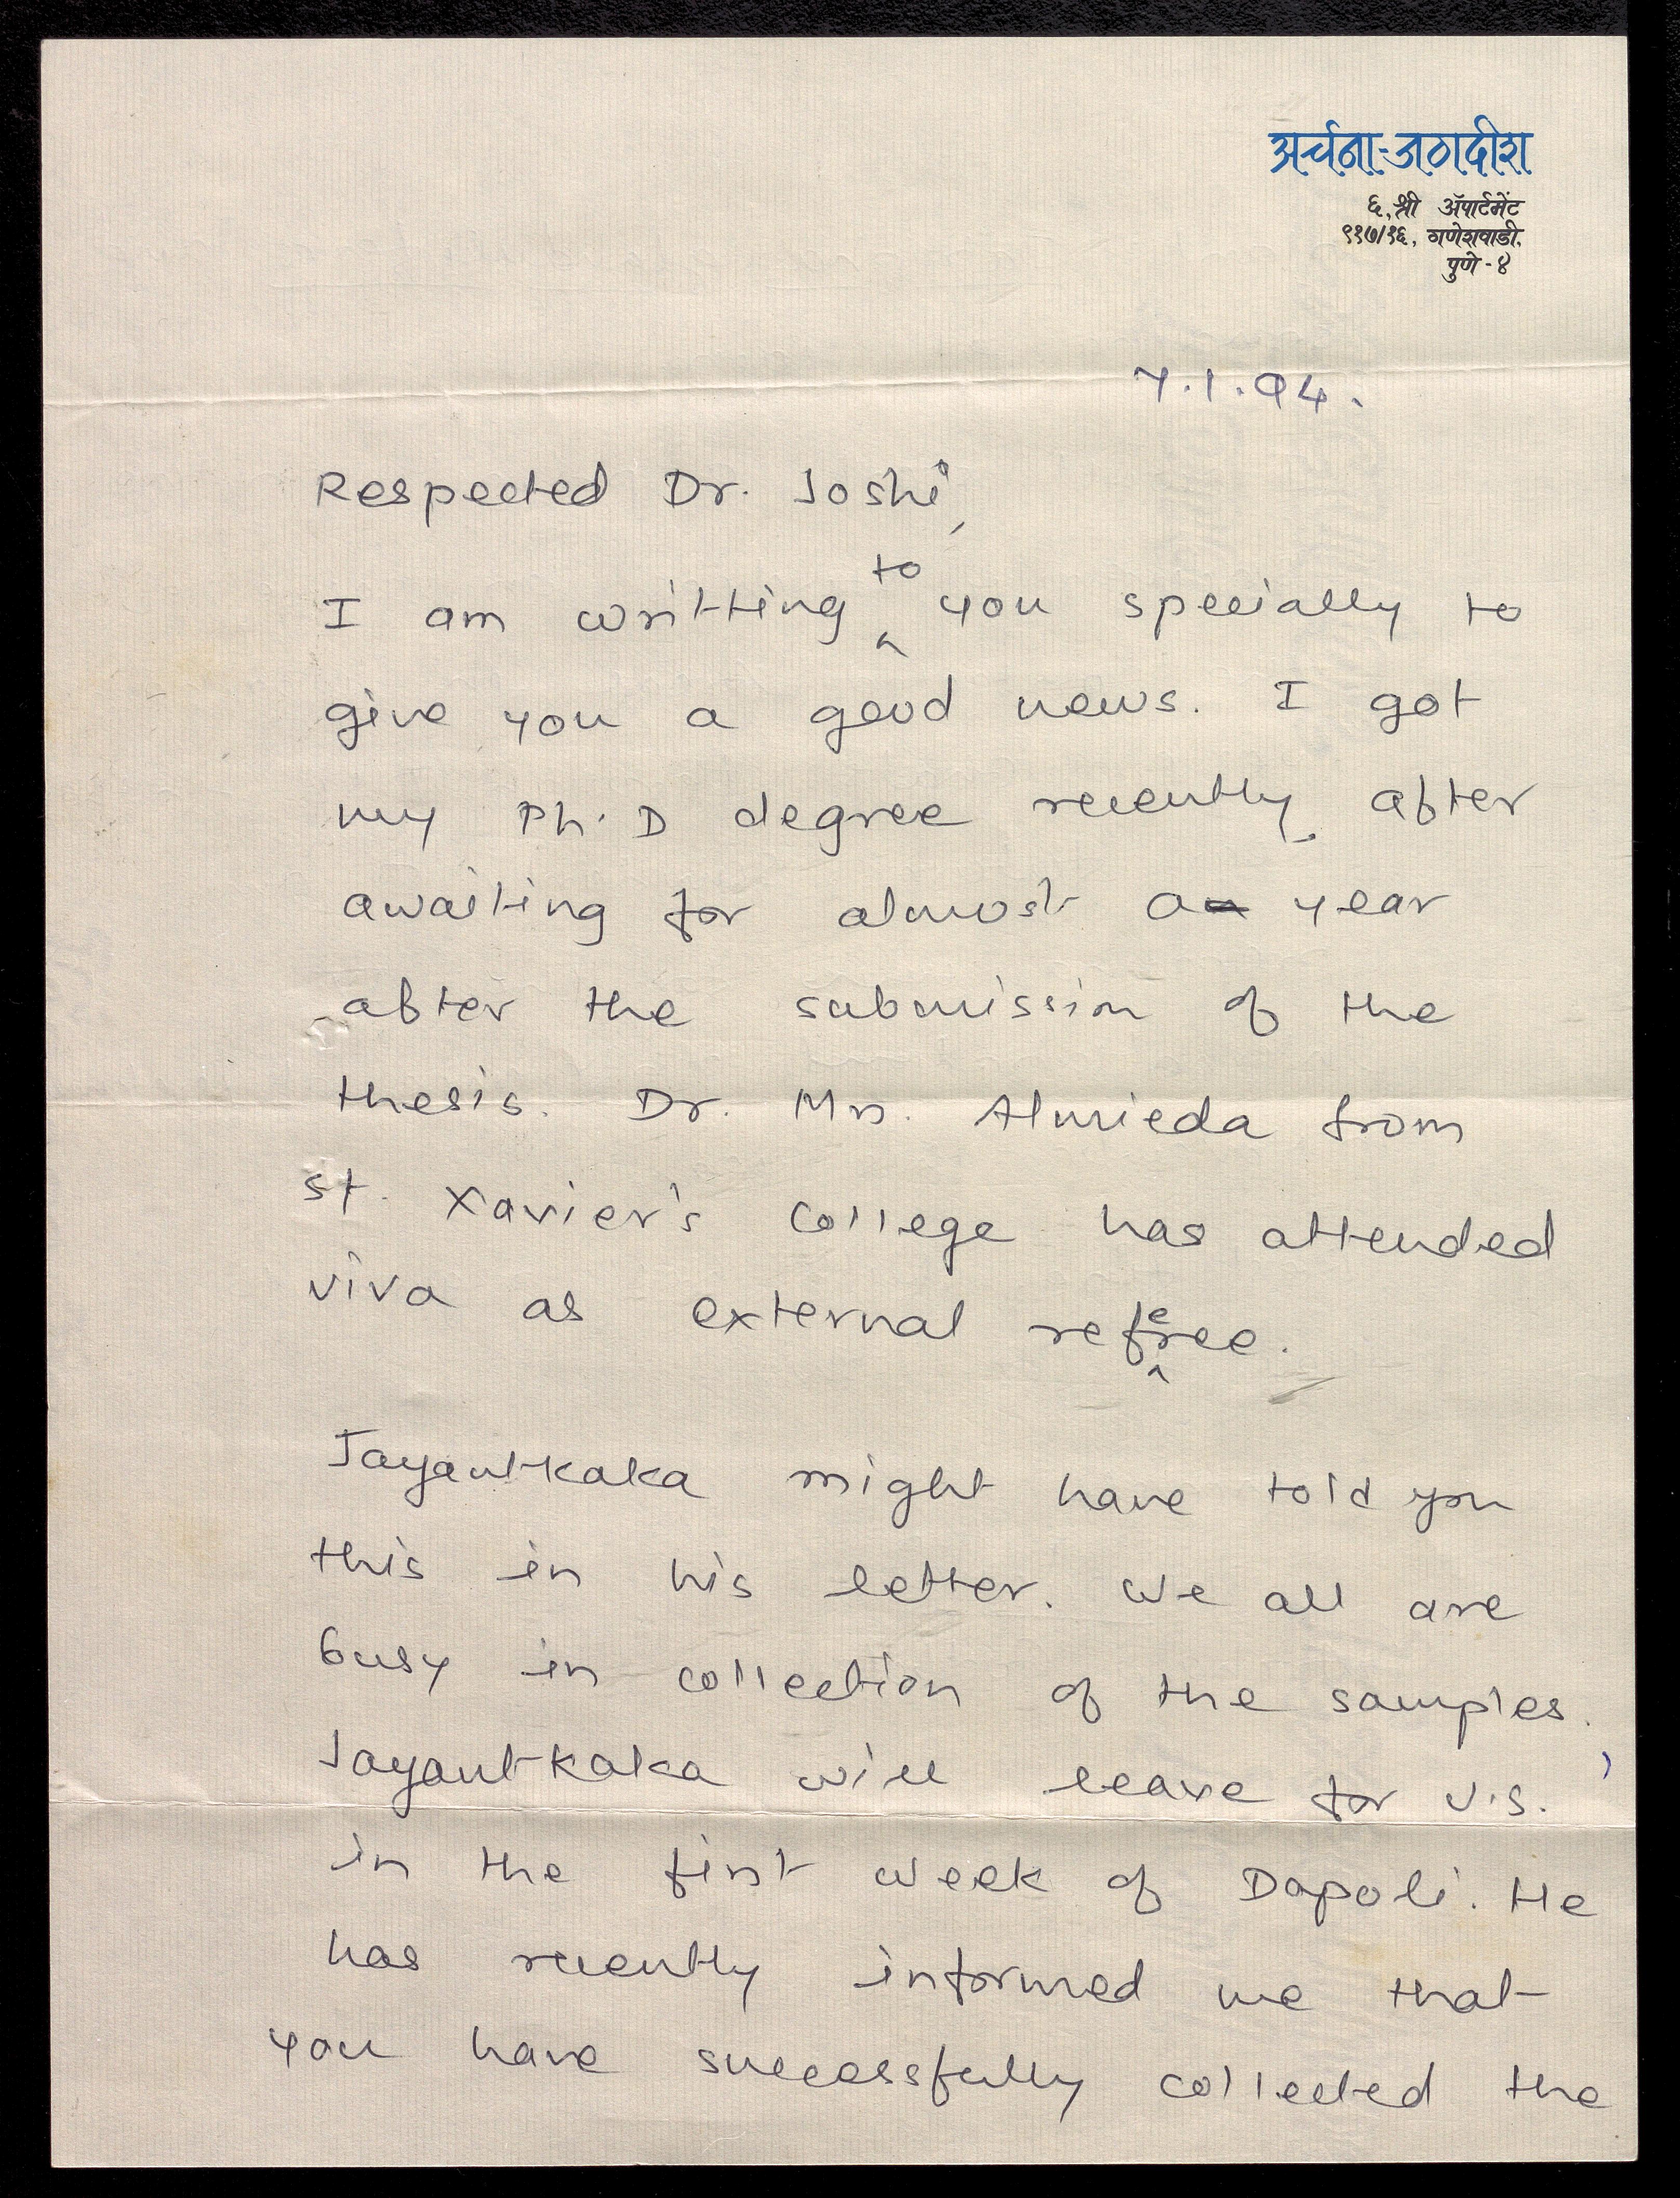 अर्चना-जगदीश
६, श्री अ‍ॅपार्टमेंट
९१७/१६, गणेशवाडी,
पुणे-४
7.1.94.
Respected Dr. Joshi,
I am writting to you specially to
give you a good news. I got
my Ph.D degree recently, after
awaiting for almost a year
after the submission of the
thesis. Dr. Mrs. Almieda from
St. Xavier's college has attended
viva as external referee.
Jayantkaka might have told you
this in his letter. We all are
busy in collection of the samples.
Jayantkaka will leave for U.S.
in the first week of Dapoli. He
has recently informed me that
you have successfully collected the